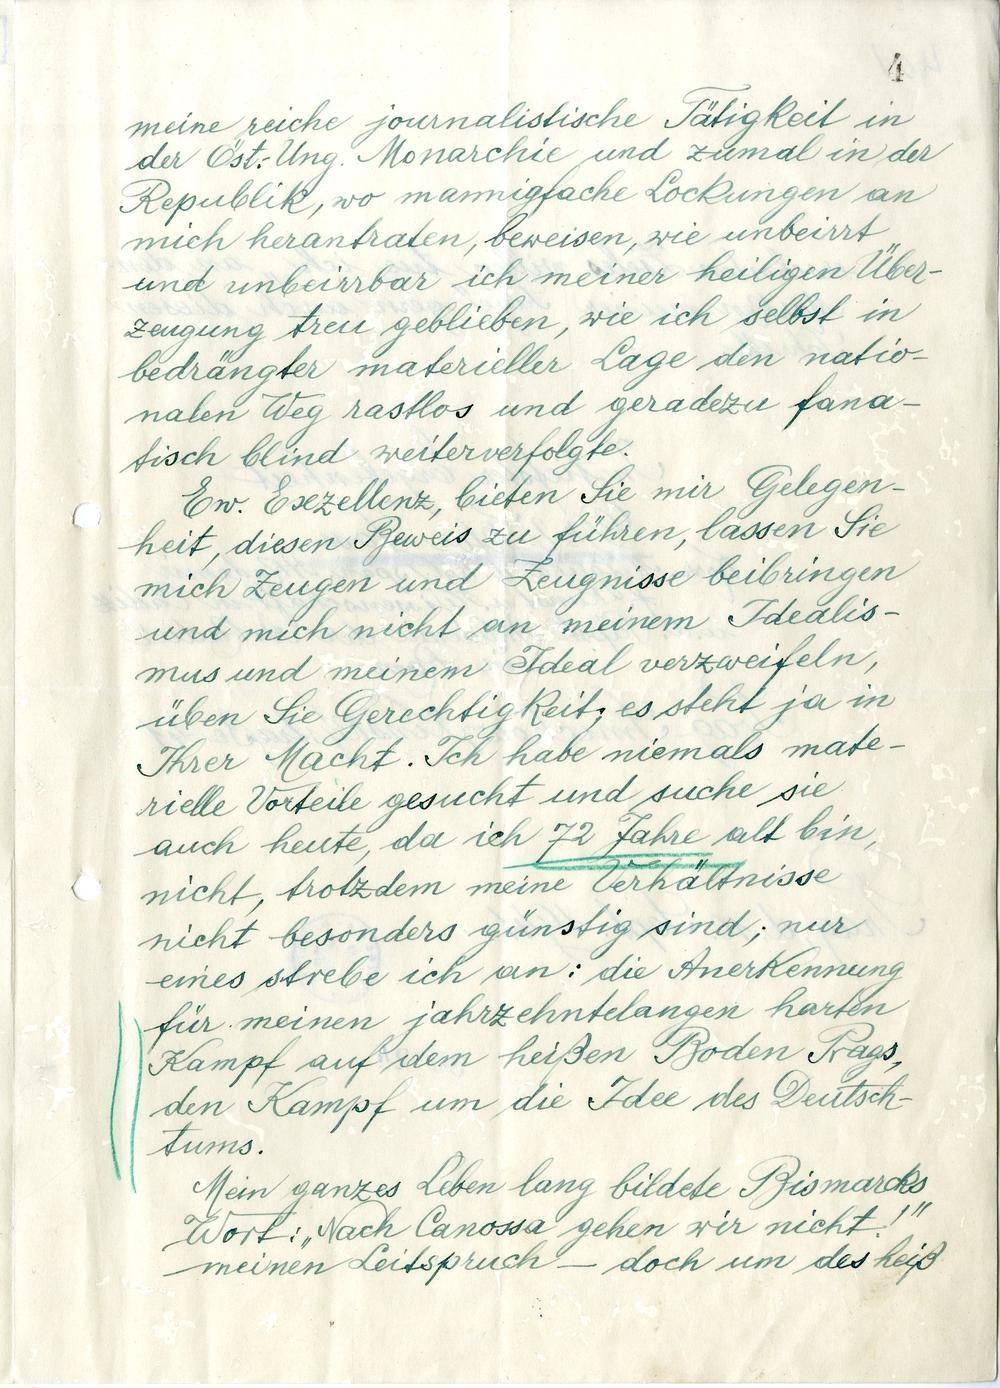 4
meine reiche journalistische Tätigkeit in
der Öst.-Ung. Monarchie und zumal in der
Republik, wo mannigfache Lockungen an
mich herantraten, beweisen, wie unbeirrt
und unbeirrbar ich meiner heiligen Über-
zeugung treu geblieben, wie ich selbst in
bedrängter materieller Lage den natio-
nalen Weg rastlos und geradezu fana-
tisch blind weiterverfolgte.
Ew. Exzellenz, bieten Sie mir Gelegen-
heit, diesen Beweis zu führen, lassen Sie
mich Zeugen und Zeugnisse beibringen
und mich nicht an meinem Idealis-
mus und meinem Ideal verzweifeln,
üben Sie Gerechtigkeit; es steht ja in
Ihrer Macht. Ich habe niemals mate-
rielle Vorteile gesucht und suche sie
auch heute, da ich 72 Jahre alt bin,
nicht, trotzdem meine Verhältnisse
nicht besonders günstig sind; nur
eines strebe ich an: die Anerkennung
für meinen jahrzehntelangen harten
Kampf auf dem heißen Boden Prags,
den Kampf um die Idee des Deutsch-
tums.
Mein ganzes Leben lang bildete Bismarcks
Wort: „Nach Canossa gehen wir nicht!"
meinen Leitspruch — doch um des heiß